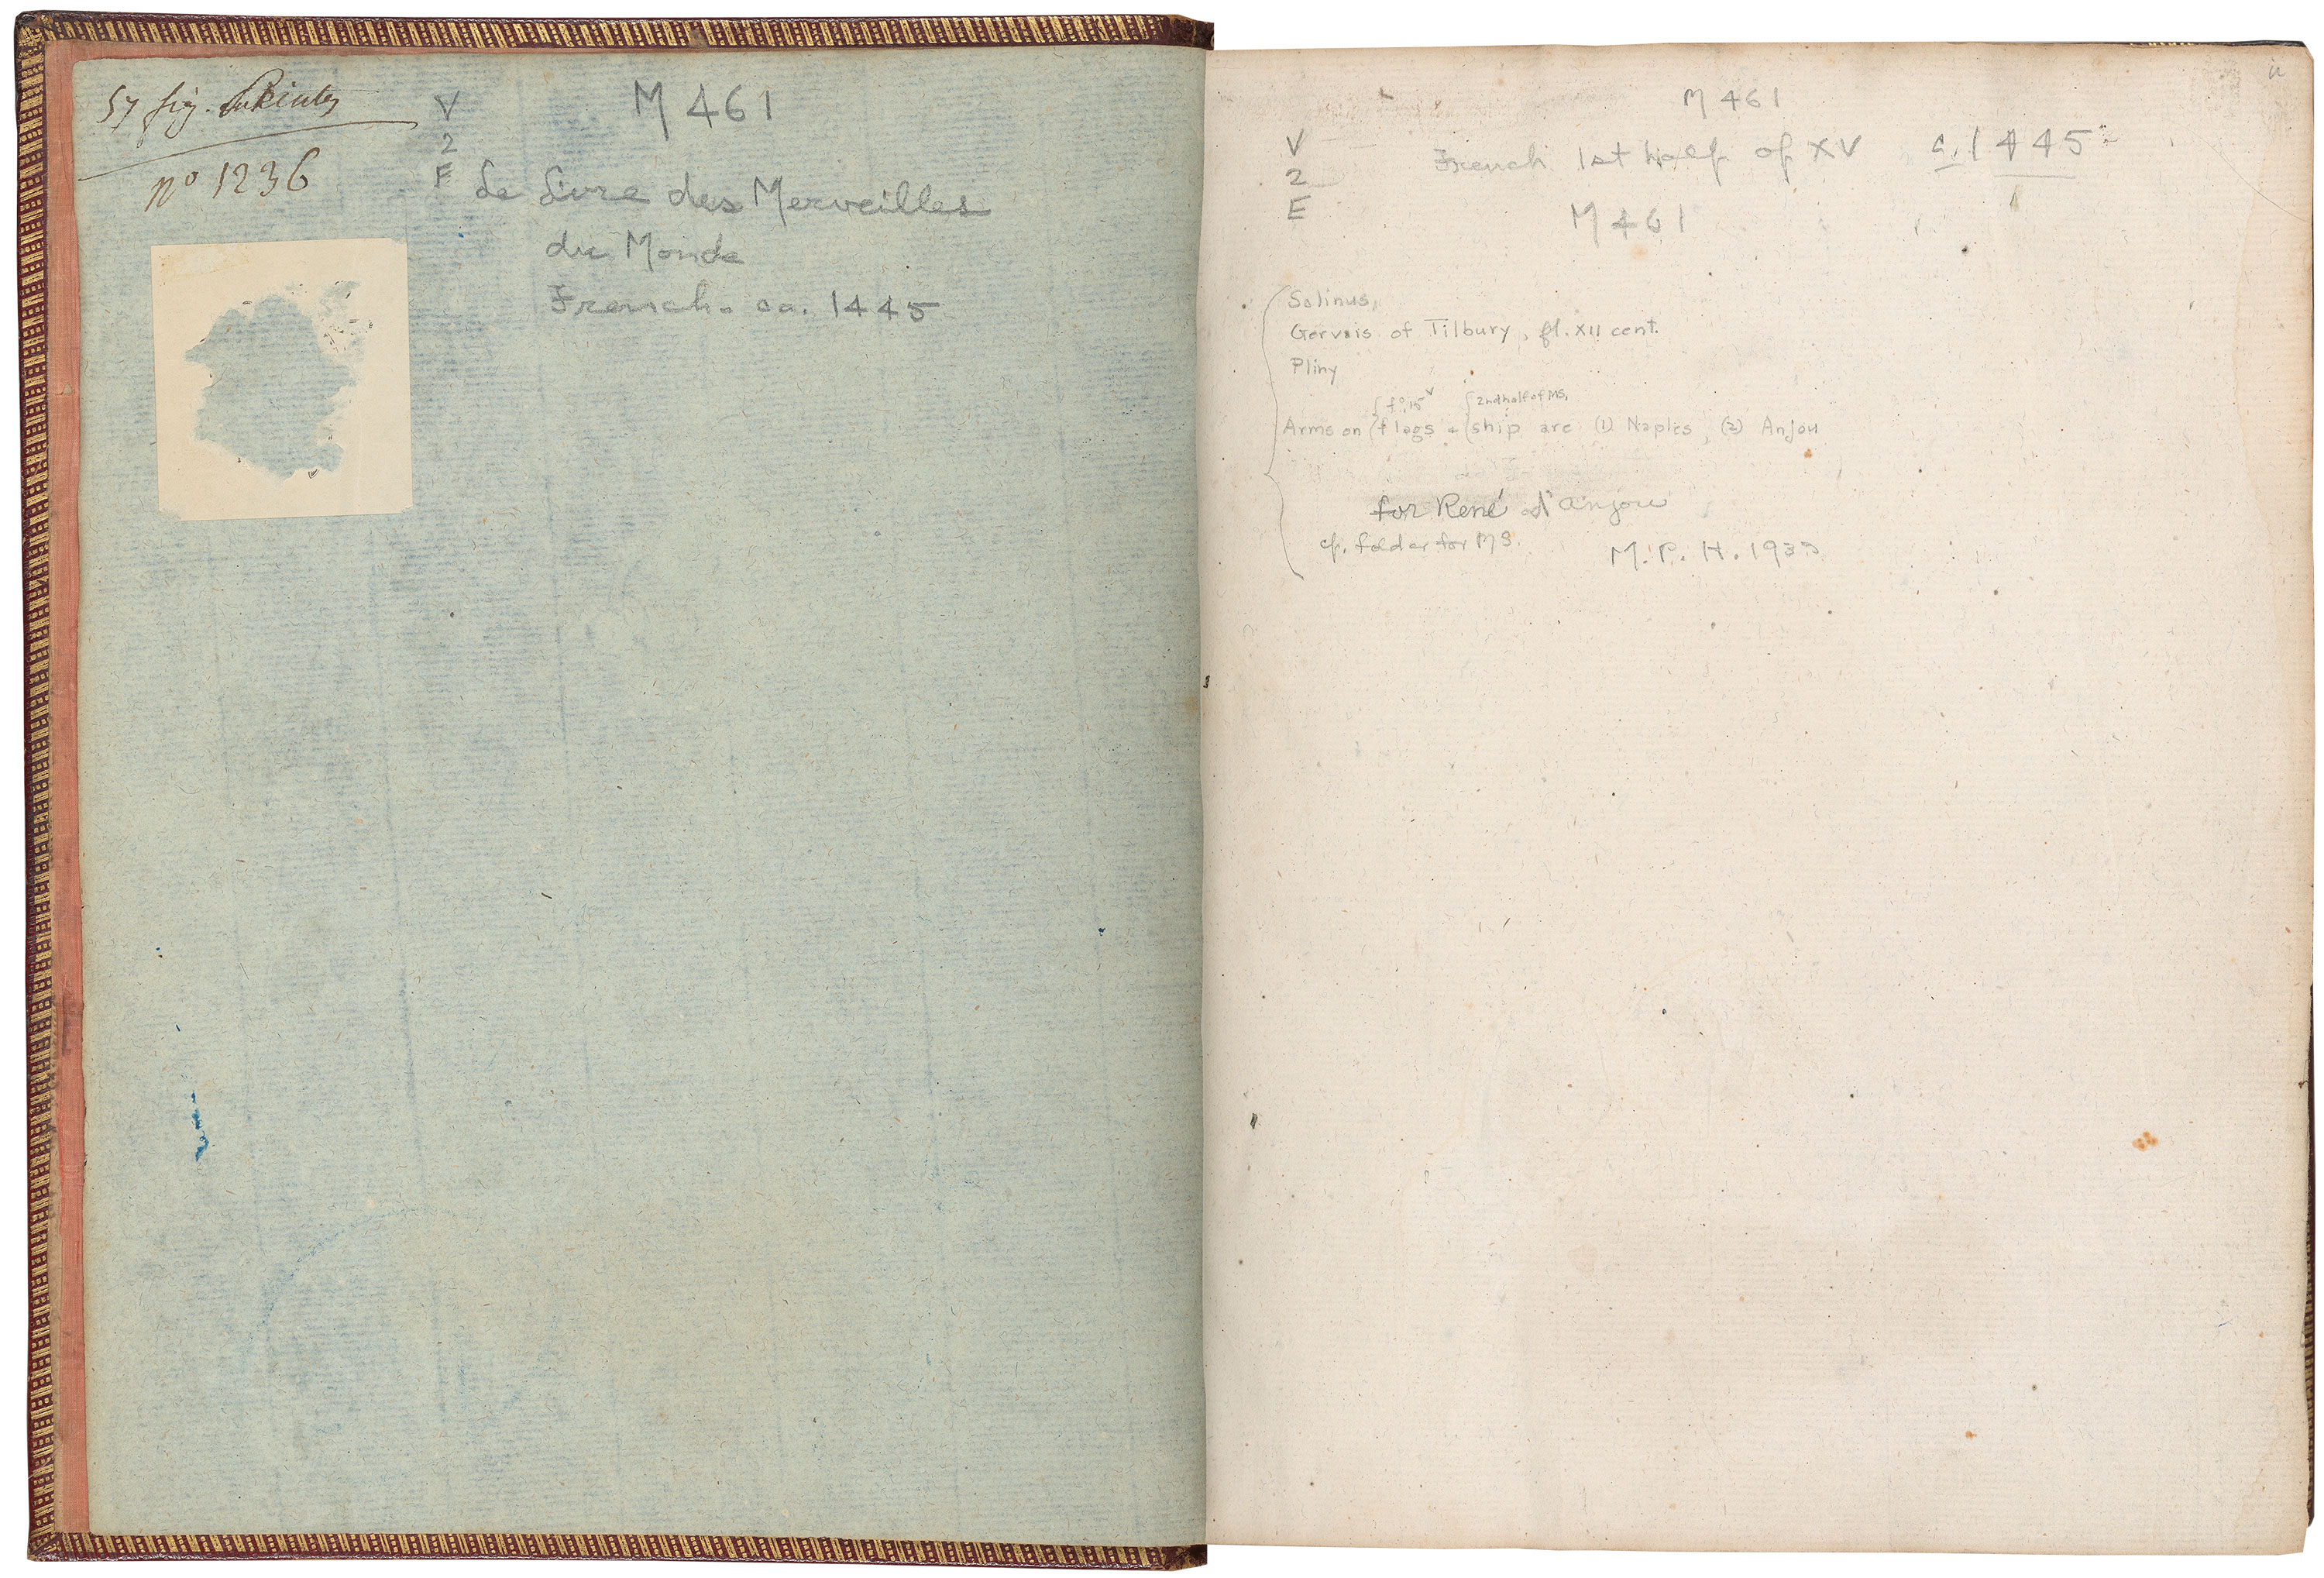 57 fig. en peintes
nº 1236
V
2
E
M 461
Le Livre des Merveilles
du Monde
French. ca. 1445
ii
M 461
V
2
E
French 1st half of XV c. 1445
M 461
Solinus,
Gervais of Tilbury, fl. XII cent.
Pliny
fº 15v 2nd half of MS,
Arms on flags + ship are (1) Naples, (2) Anjou
for René d'Anjou
cf. folder for MS.
M. P. H. 1935